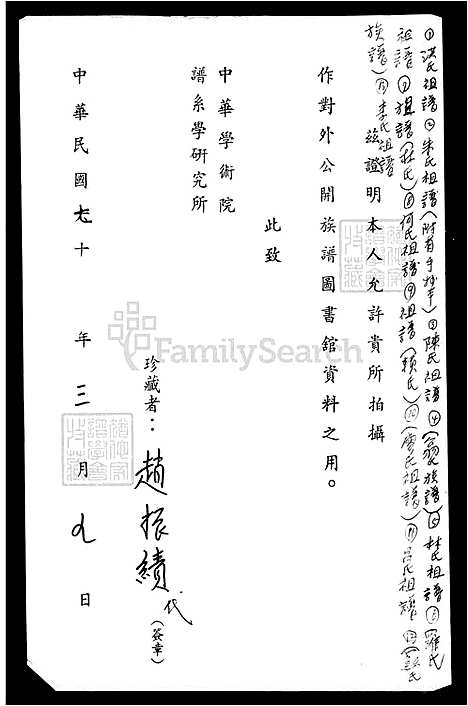 ①洪氏祖譜②朱氏祖譜(附有手抄本)③陳氏祖譜④(翁氏族譜)⑤林氏祖譜⑥(羅氏
祖譜⑦祖譜(莊氏)⑧何氏祖譜⑨祖譜(賴氏)⑩(廖氏祖譜)⑪呂氏祖譜⑫
族譜)⑬李氏祖譜
茲證明本人允許貴所拍攝
作對外公開族譜圖書館資料之用。
此致
中華學術院
譜系學研究所
珍藏者:趙振績代(簽章)
中華民國七十年三月九日
FamilySearch